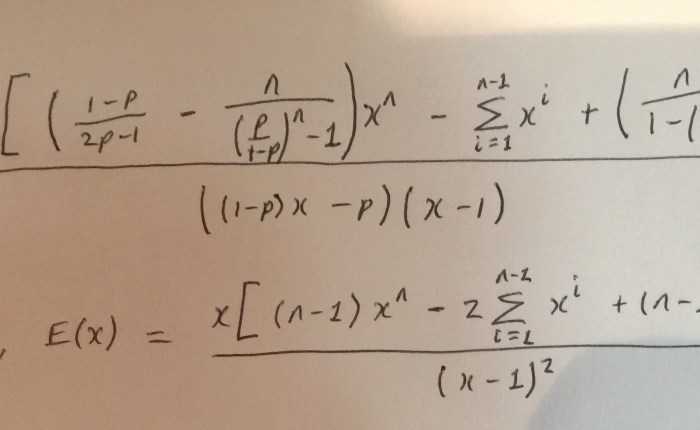 [ ( (1-p)/(2p-1) - n/((p/(1-p))^n - 1) ) x^n - Σ_{i=1}^{n-1} x^i + ( n/(1-(
((1-p)x - p)(x-1)
, E(x) = x[ (n-1) x^n - 2 Σ_{i=1}^{n-1} x^i + (n-
(x-1)^2